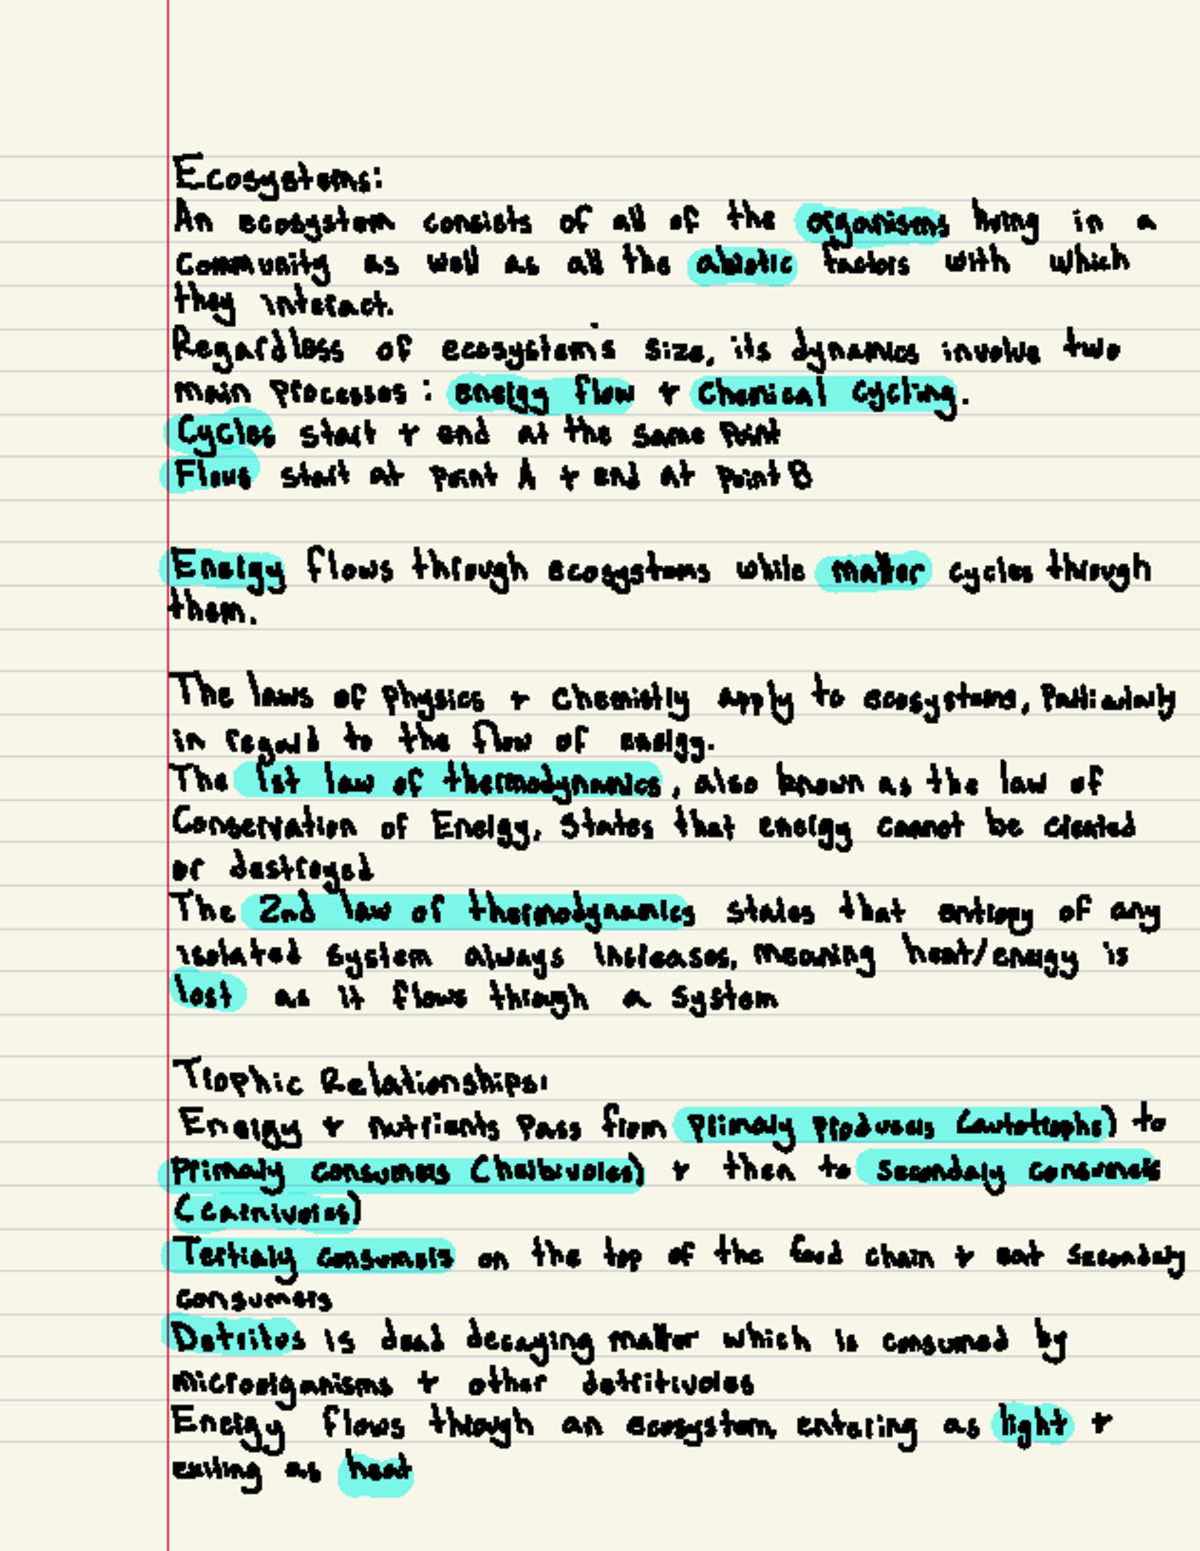 Ecosystems:
An ecosystem consists of all of the organisms living in a
community as well as all the abiotic factors with which
they interact.
Regardless of ecosystem's size, its dynamics involve two
main processes: energy flow + chemical cycling.
Cycles start + end at the same point
Flows start at point A + end at point B
Energy flows through ecosystems while matter cycles through
them.
The laws of physics + chemistry apply to ecosystems, particularly
in regard to the flow of energy.
The 1st law of thermodynamics, also known as the law of
Conservation of Energy, states that energy cannot be created
or destroyed
The 2nd law of thermodynamics states that entropy of any
isolated system always increases, meaning heat/energy is
lost as it flows through a system
Trophic Relationships:
Energy + nutrients pass from primary producers (autotrophs) to
primary consumers (herbivores) + then to secondary consumers
(carnivores)
Tertiary consumers on the top of the food chain + eat secondary
consumers
Detritus is dead decaying matter which is consumed by
microorganisms + other detritivores
Energy flows through an ecosystem entering as light +
exiting as heat